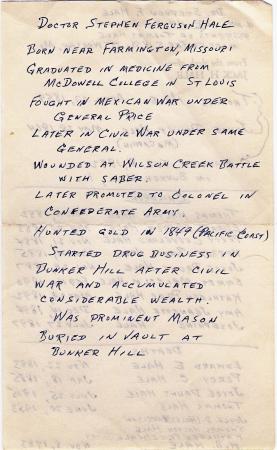 DOCTOR STEPHEN FERGUSON HALE
BORN NEAR FARMINGTON, MISSOURI
GRADUATED IN MEDICINE FROM
MCDOWELL COLLEGE IN ST LOUIS
FOUGHT IN MEXICAN WAR UNDER
GENERAL PRICE
LATER IN CIVIL WAR UNDER SAME
GENERAL.
WOUNDED AT WILSON CREEK BATTLE
WITH SABER.
LATER PROMOTED TO COLONEL IN
CONFEDERATE ARMY.
HUNTED GOLD IN 1849 (PACIFIC COAST)
STARTED DRUG BUSINESS IN
BUNKER HILL AFTER CIVIL
WAR AND ACCUMULATED
CONSIDERABLE WEALTH.
WAS PROMINENT MASON
BURIED IN VAULT AT
BUNKER HILL